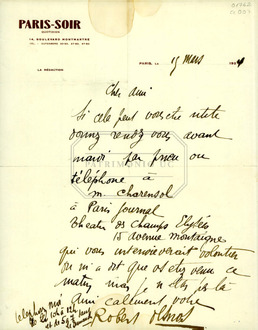 PARIS-SOIR
QUOTIDIEN
14, BOULEVARD MONTMARTRE
LA RÉDACTION
PARIS, LE 15 mars 193
Cher ami
Si cela peut vous être utile
donnez rendez vous avant
mardi par pneu ou
téléphone à
m. Charensol
à Paris Journal
Theatre des Champs Elysées
15 avenue montaigne
qui vous interviewerait volontiers
on m'a dit que vous etiez venu ce
matin mais je n'étais pas là
Amicalement votre
Robert Desnos